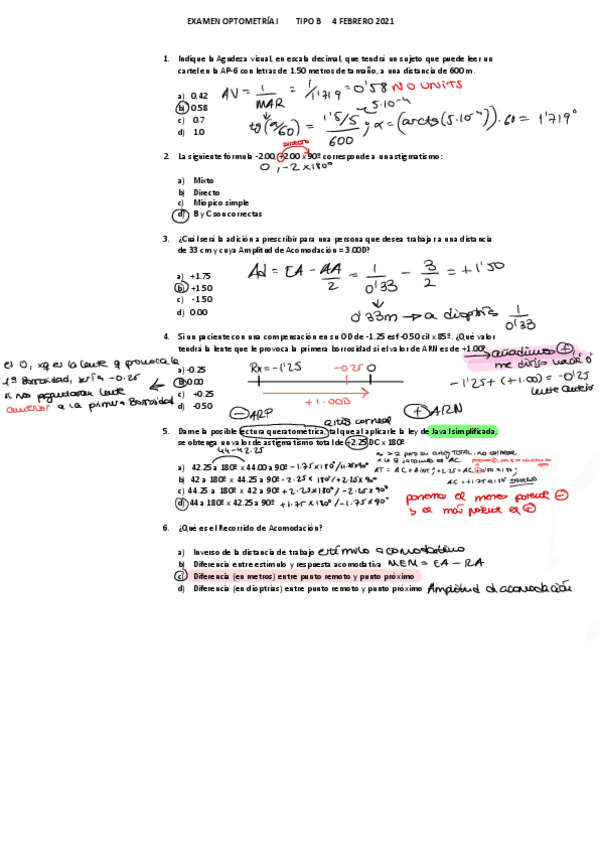 EXAMEN OPTOMETRÍA I TIPO B 4 FEBRERO 2021
1. Indique la Agudeza visual, en escala decimal, que tendrá un sujeto que puede leer un
cartel en la AP-6 con letras de 1.50 metros de tamaño, a una distancia de 600 m.
a) 0.42
b) 0.58
c) 0.7
d) 1.0
AV = 1/MAR = 1/1'719 = 0'58 NO UNITS
tg(α/60) = 1'5/5 / 600 ; α = (arctg(5·10⁻⁴))·60 = 1'719°
5·10⁻⁴
2. La siguiente fórmula -2.00, +2.00 x 90º corresponde a un astigmatismo:
0, -2 x 180º
a) Mixto
b) Directo
c) Miópico simple
d) B y C son correctas
3. ¿Cuál será la adición a prescribir para una persona que desea trabajar a una distancia
de 33 cm y cuya Amplitud de Acomodación = 3.00D?
a) +1.75
b) +1.50
c) -1.50
d) 0.00
Ad = EA - AA/2 = 1/0'33 - 3/2 = +1'50
0'33m → a dioptrías 1/0'33
4. Si un paciente con una compensación en su OD de -1.25 esf -0.50 cil x 85º. ¿Qué valor
tendrá la lente que le provoca la primera borrosidad si el valor de ARN es de +1.00?
añadimos +,
me dirijo hacia 0
a) -0.25
b) 0.00
c) +0.25
d) -0.50
es 0, xq es la lente q provoca la
1ª borrosidad, sería -0.25
si nos preguntaran lente
anterior a la primera borrosidad
Rx = -1'25 -0'25 0
+1.00D
- ARP + ARN
-1'25 + (+1.00) = -0'25
lente anterior
5. Dame la posible lectura queratométrica, tal que al aplicarle la ley de Javal simplificada,
se obtenga un valor de astigmatismo total de +2.25 DC x 180º
astig corneal
44-42.25
a) 42.25 a 180º x 44.00 a 90º -1.75x180º/1.75x90º
b) 42 a 180º x 44.25 a 90º -2.25 x 180º/+2.25 x 90º
c) 44.25 a 180º x 42 a 90º +2.25x180º/-2.25x90º
d) 44 a 180º x 42.25 a 90º +1.75 x 180º/-1.75 x 90º
ponemos el menos potente -
y el más potente el +
6. ¿Qué es el Recorrido de Acomodación?
a) Inverso de la distancia de trabajo estímulo acomodativo
b) Diferencia entre estimulo y respuesta acomodativa MEM = EA - RA
c) Diferencia (en metros) entre punto remoto y punto próximo
d) Diferencia (en dioptrías) entre punto remoto y punto próximo Amplitud d acomodación